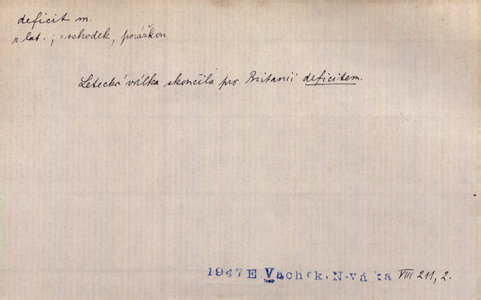 deficit m.
z lat.; = schodek, porážkou
Letecká válka skončila pro Britanii deficitem.
1947 E Vachek. N.válka VIII 211, 2.